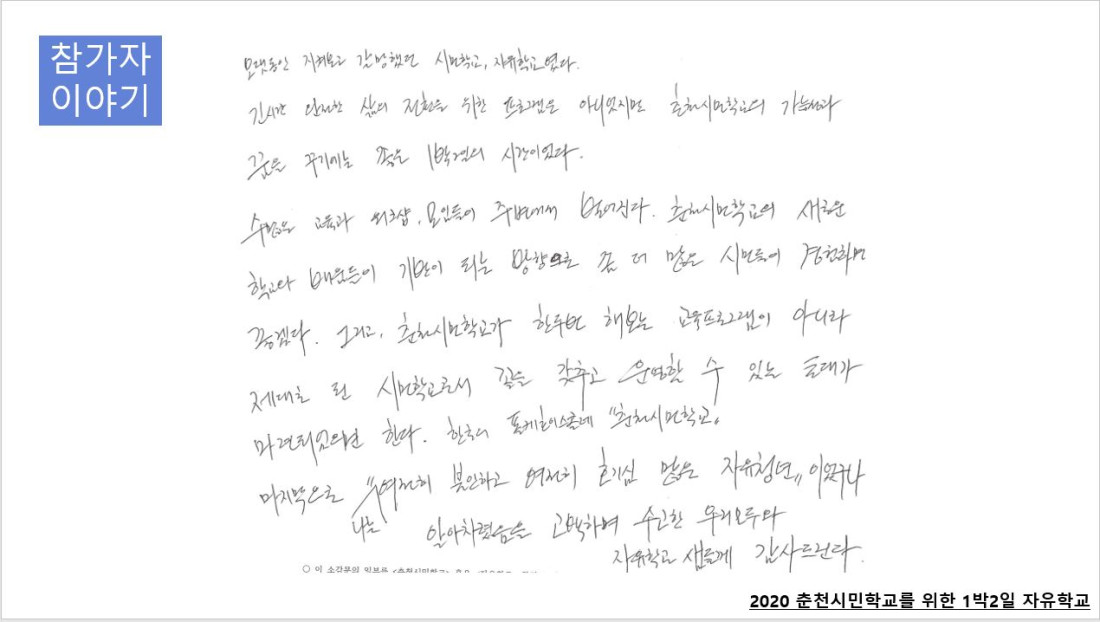 참가자
이야기
오랫동안 지켜보고 갈망했던 시민학교, 자유학교였다.
긴시간 안전한 삶의 전환을 위한 프로그램은 아니었지만 춘천시민학교의 가능성과
꿈을 꾸기에는 좋은 1박2일의 시간이었다.
수많은 교육과 워크샵, 모임들이 주변에서 벌어진다. 춘천시민학교의 새로운
학교와 배움들이 기반이 되는 방향으로 좀 더 많은 시민들이 경험하면
좋겠다. 그리고, 춘천시민학교가 한두번 해보는 교육프로그램이 아니라
제대로 된 시민학교로서 꼴을 갖추고 운영할 수 있는 토대가
마련되었으면 한다. 한국의 폴케호이스콜레 "춘천시민학교"
마지막으로 "여전히 불안하고 여전히 호기심 많은 자유청년" 이었구나
나는 알아차렸음을 고백하며 수고한 우리모두와
자유학교 샘들께 감사드린다.
○ 이 소감문의 일부는
2020 춘천시민학교를 위한 1박2일 자유학교